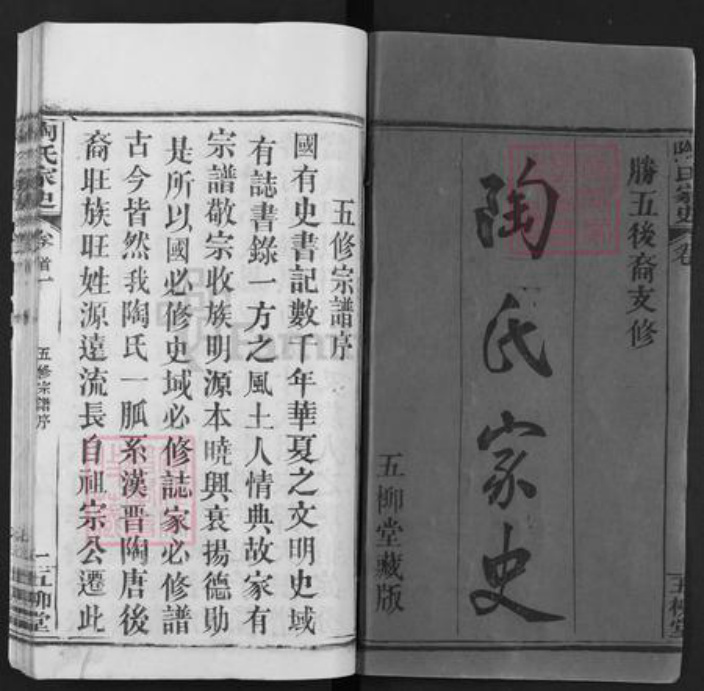 勝五後裔支修
陶氏家史
五柳堂藏版
五修宗譜序
國有史書記數千年華夏之文明史域
有誌書錄一方之風土人情典故家有
宗譜敬宗收族明源本曉興衰揚德勛
是所以國必修史域必修誌家必修譜
古今皆然我陶氏一脈系漢晋陶唐後
裔旺族旺姓源遠流長自祖宗公遷此
陶氏家史
卷首一
五修宗譜序
一五柳堂